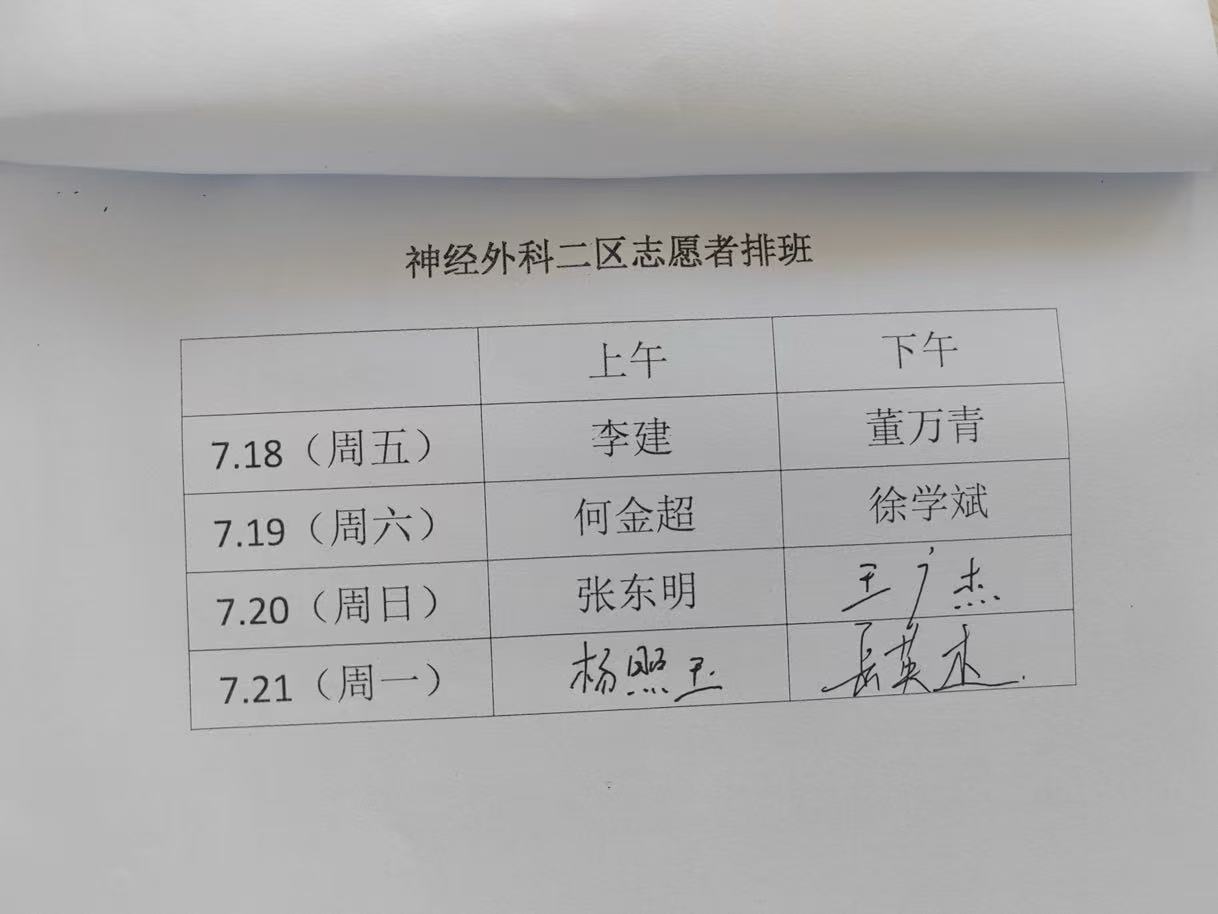 神经外科二区志愿者排班
上午 下午
7.18（周五） 李建 董万青
7.19（周六） 何金超 徐学斌
7.20（周日） 张东明 王广杰
7.21（周一） 杨照玉 英杰